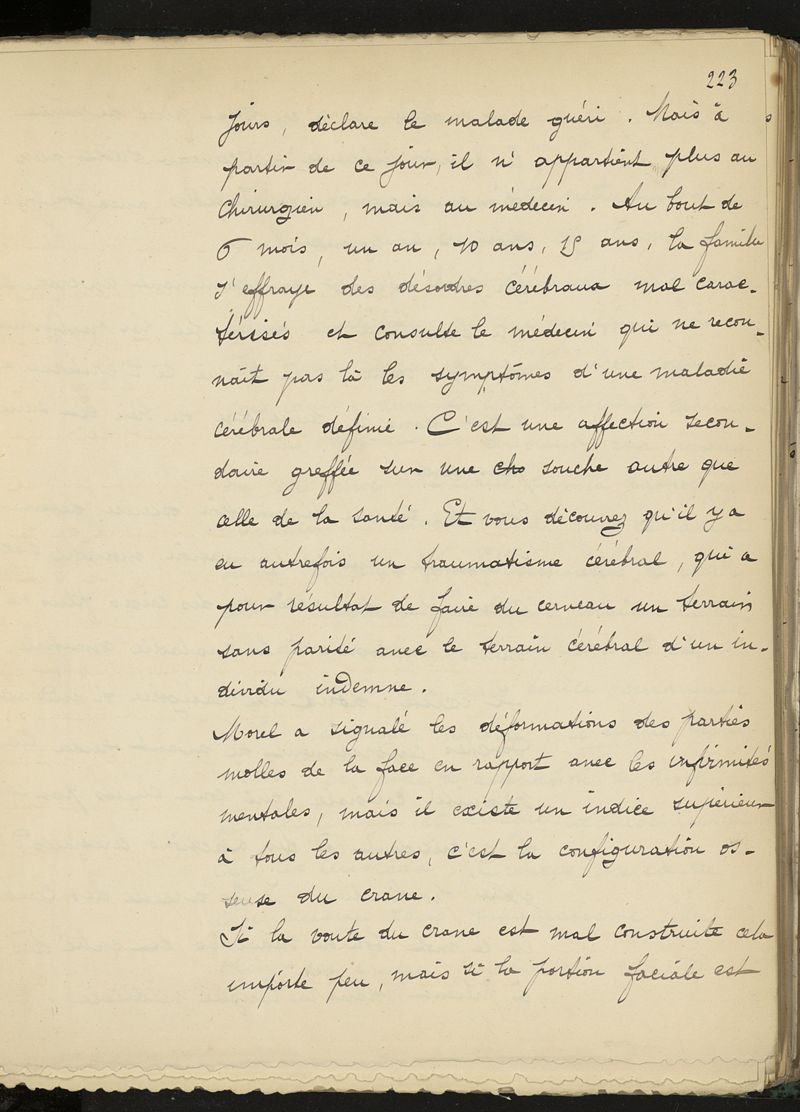 223
jours, déclare le malade guéri. Mais à
partir de ce jour, il n'appartient plus au
Chirurgien, mais au médecin. Au bout de
6 mois, un an, 10 ans, 15 ans, la famille
s'effraye des désordres cérébraux mal carac-
térisés et consulte le médecin qui ne recon-
nait pas là les symptômes d'une maladie
cérébrale définie. C'est une affection secon-
daire greffée sur une cho souche autre que
celle de la santé. Et vous découvrez qu'il y a
eu autrefois un traumatisme cérébral, qui a
pour résultat de faire du cerveau un terrain
sans parité avec le terrain cérébral d'un in-
dividu indemne.
Morel a signalé les déformations des parties
molles de la face en rapport avec les infirmités
mentales, mais il existe un indice supérieur
à tous les autres, c'est la configuration os-
seuse du crane.
Si la voute du crane est mal construite cela
importe peu, mais si la portion faciale est